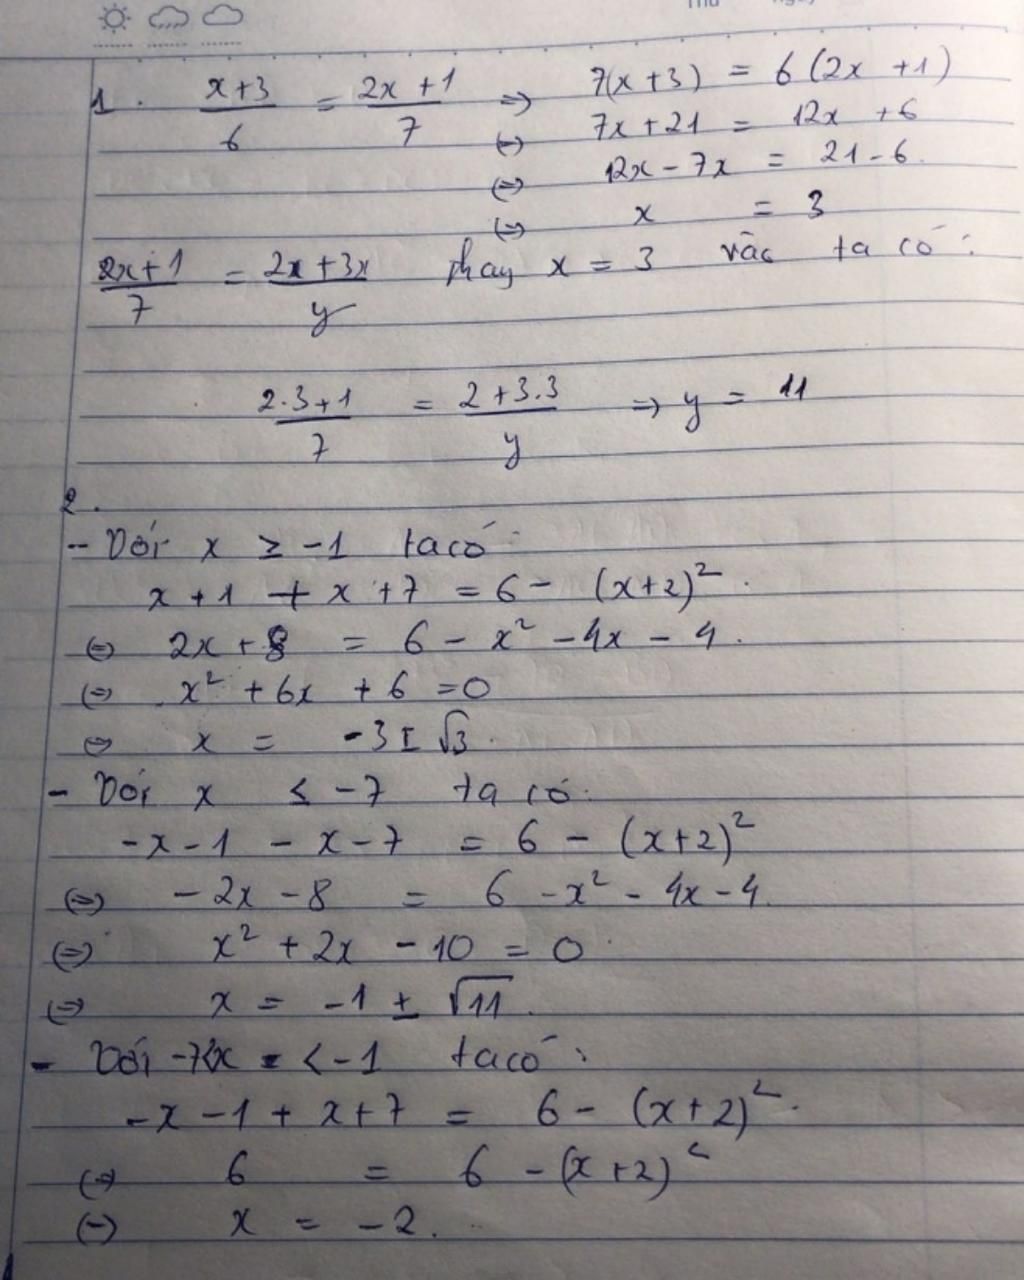 1. \frac{x+3}{6} = \frac{2x+1}{7} => 7(x+3) = 6(2x+1)
<=> 7x+21 = 12x+6
<=> 12x-7x = 21-6.
<=> x = 3
\frac{2x+1}{7} = \frac{2x+3x}{y} thay x = 3 vào ta có:
\frac{2.3+1}{7} = \frac{2+3.3}{y} => y = 11
2.
- Với x ≥ -1 ta có
x+1 + x+7 = 6 - (x+2)².
<=> 2x+8 = 6 - x² - 4x - 4.
<=> x² + 6x + 6 = 0
<=> x = -3 ± √3.
- Với x ≤ -7 ta có.
-x-1 - x-7 = 6 - (x+2)²
<=> -2x - 8 = 6 - x² - 4x - 4.
<=> x² + 2x - 10 = 0.
<=> x = -1 ± √11.
- Với -7<x < -1 ta có:
-x - 1 + x+7 = 6 - (x+2)².
<=> 6 = 6 - (x+2)²
<=> x = -2.